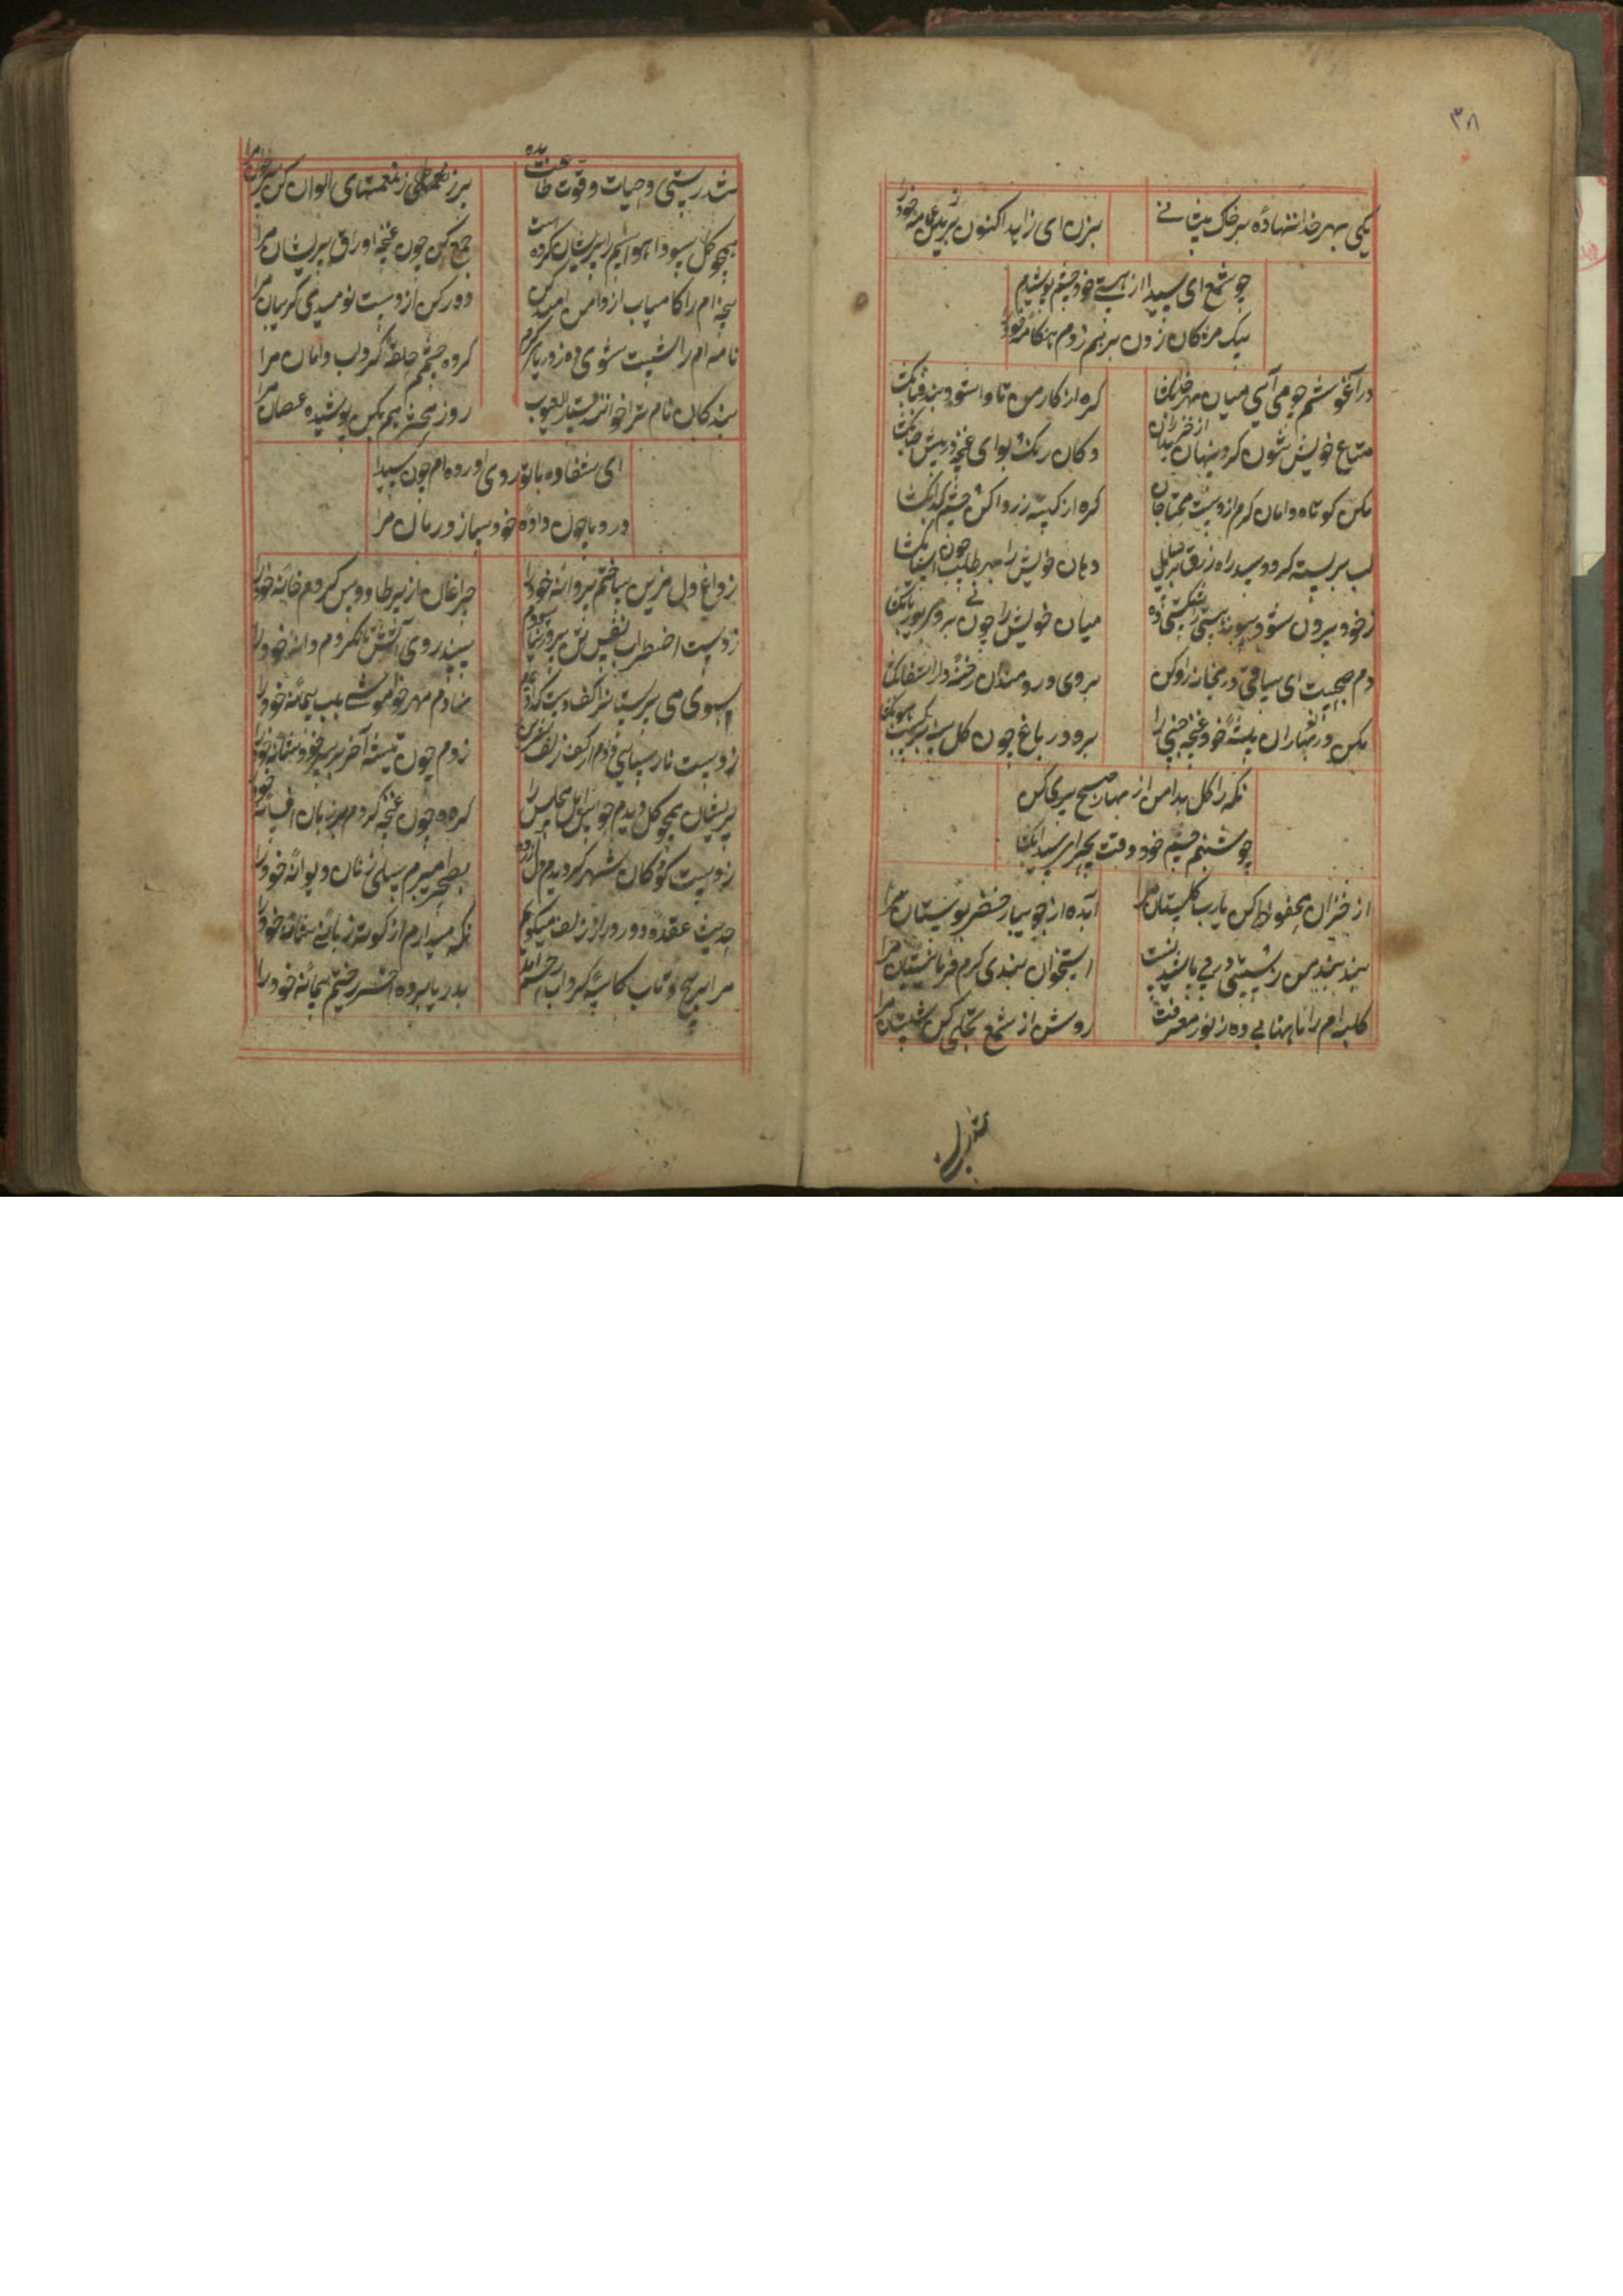 ۳۸
یکی بهر خدا ننهاده سر خاک
بزن ای زاهد اکنون بر خود را
چو شمع ای سیدا از هستی خود چشم پوشیدم
بیک مژکان زدن برهم زدم هنکامه خود را
در آغوشم چو می آیی میان
کره از کار من تا وا شود بند قبا بکشا
متاع خویش نتوان کرد پنهان از خریداران
دکان رنک و بو ای غنچه
مکن کوتاه دامان کرم از دست محتاجان
کره از کیسه زر وا کن چشم کدا بکشا
لب بربسته کردد سد راه رزق
دهان خویش را بهر طلب چون آسیا بکشا
ز خود بیرون شو و
میان خویش را چون نی
دم صبحیست ای ساقی در میخانه را وا کن
بروی دردمندان رخنه دار الشفا بکشا
مکن در نوبهاران بسته خود غنچه خسپی را
برو در باغ چون کل سینه
نکه را کل بدامن از بهار صبح خیزی کن
چو شبنم چشم خود وقت سحر ای سیدا بکشا
از خزان محفوظ کن یارب کلستان مرا
آب ده از جویبار خضر بوستان مرا
بند بند من ز
استخوان بندی کرم فرما نیستان مرا
کلبه ام را ماهتابی ده ز نور معرفت
روشن از شمع تجلی کن شبستان مرا
تندرستی
تندرستی و حیات و قوت طاعت بده
پر ز نعمتهای الوان کن سر خوان مرا
همچو کل سودا هواسم را پریشان کرده است
جمع کن چون غنچه اوراق پریشان مرا
پنجه ام را کامیاب از دامن امید کن
دور کن از دست نومیدی کریبان مرا
نامه ام را شست شوی ده ز دریای کرم
کرده چشمم حلقه کرداب دامان مرا
بندکان نام ترا خوانند ستار العیوب
روز محشر هم بکن پوشیده عصیان مرا
ای شفا ده با تو روی آورده ام چون سیدا
درد یا چون داده خود ساز درمان مرا
ز داغ دل مزین ساختم پروانه خود را
چراغان از پر طاووس کردم خانه خود را
ز دست اضطراب نفس تن
سپند روی آتش تا نکردم دانه خود را
سبوی می پرستانرا کف دست کدا
نهادم مهر خاموشی بلب پیمانه خود را
ز دست نارسایی دادم از کف زلف
زدم چون تیشه آخر بر سر خود شانه خود را
پریشان همچو کل دیدم حواس اهل مجلس را
کره چون غنچه کردم بر زبان افسانه خود را
ز دست کودکان شهر کردیدم دل آزرده
بصحرا میبرم سیلی زنان دیوانه خود را
حدیث عقده دور و دراز زلف میکویم
نکه میدارم از کوته زبانی شانه خود را
مرا پر پیچ و تاب کاسه کرداب
بدریا برده آخر ریختم پیمانه خود را